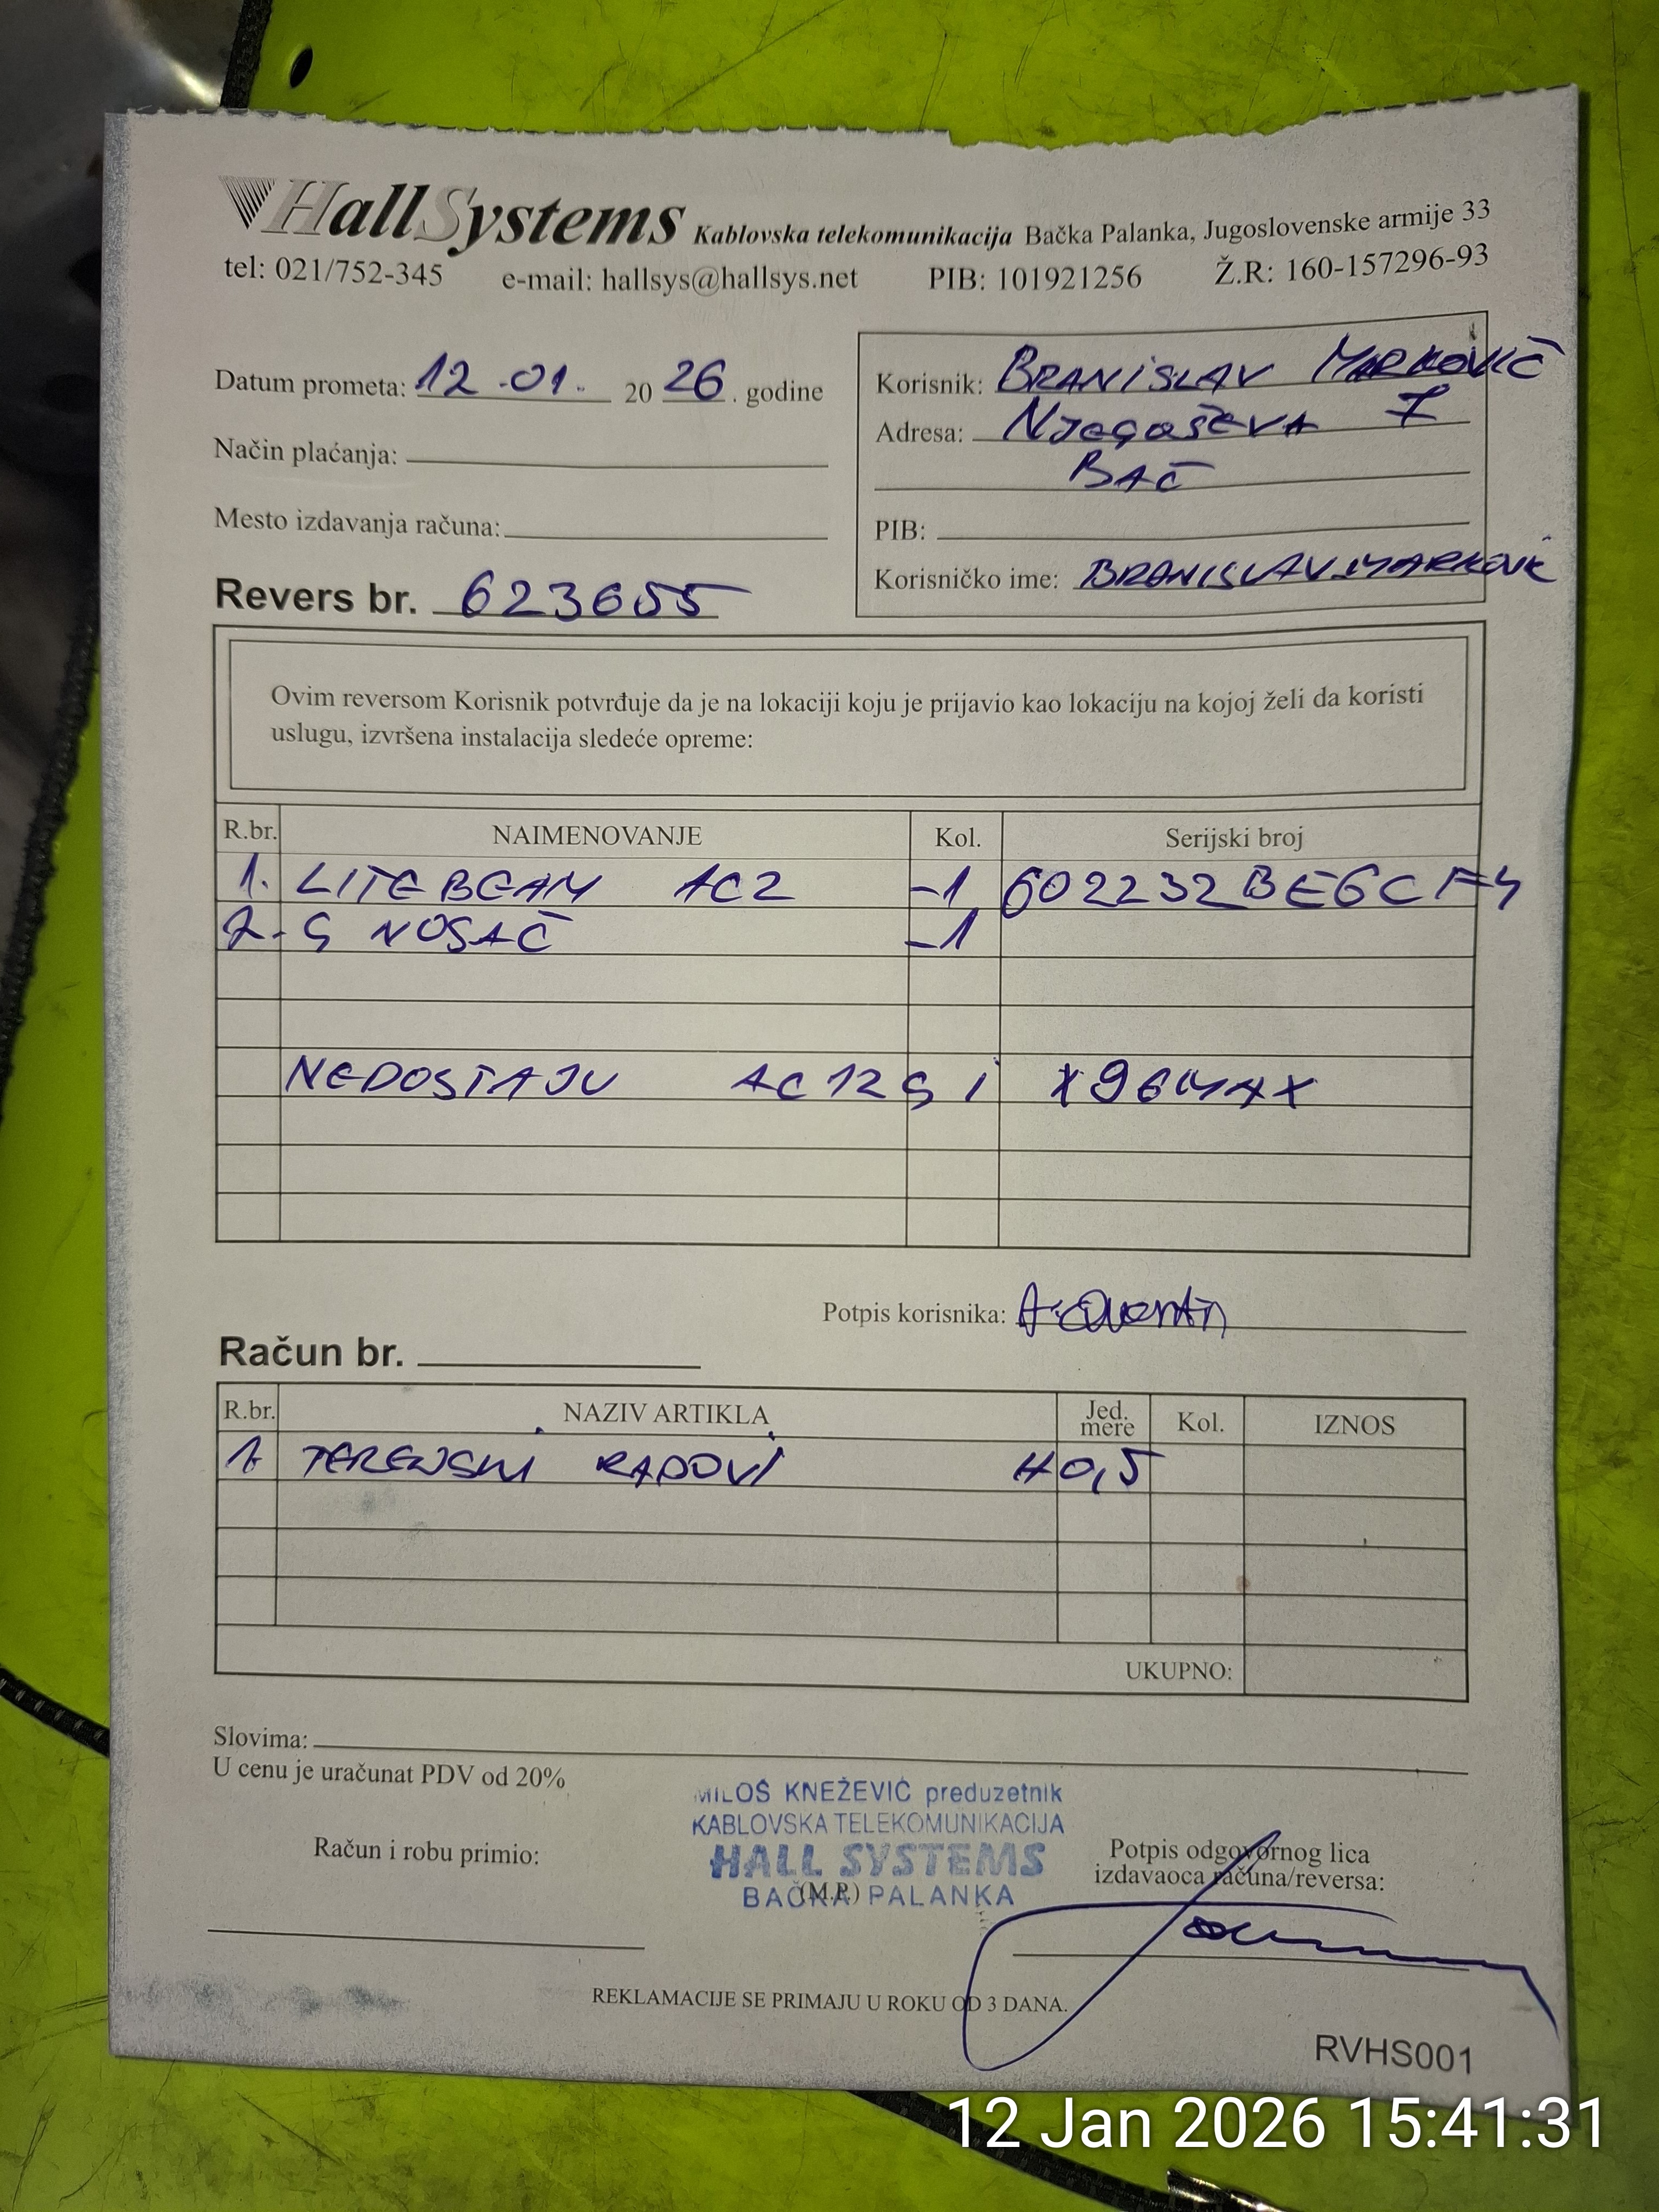 HallSystems Kablovska telekomunikacija Bačka Palanka, Jugoslovenske armije 33
tel: 021/752-345 e-mail: hallsys@hallsys.net PIB: 101921256 Ž.R: 160-157296-93
Datum prometa: 12.01. 2026. godine
Način plaćanja:
Mesto izdavanja računa:
Revers br. 623655
Korisnik: BRANISLAV MARKOVIĆ
Adresa: NJEGOŠEVA 7
BAČ
PIB:
Korisničko ime: BRANISLAV.MARKOVIC
Ovim reversom Korisnik potvrđuje da je na lokaciji koju je prijavio kao lokaciju na kojoj želi da koristi
uslugu, izvršena instalacija sledeće opreme:
R.br. NAIMENOVANJE Kol. Serijski broj
1. LITEBEAM AC2 -1 602232BE6CF4
2. G NOSAČ -1
NEDOSTAJU AC12G i X96MAX
Potpis korisnika:
Račun br.
R.br. NAZIV ARTIKLA Jed. mere Kol. IZNOS
1. TERENSKI RADOVI H0,5
UKUPNO:
Slovima:
U cenu je uračunat PDV od 20%
MILOŠ KNEŽEVIĆ preduzetnik
KABLOVSKA TELEKOMUNIKACIJA
HALL SYSTEMS
BAČKA PALANKA
(M.P.)
Račun i robu primio:
Potpis odgovornog lica
izdavaoca računa/reversa:
REKLAMACIJE SE PRIMAJU U ROKU OD 3 DANA.
RVHS001
12 Jan 2026 15:41:31